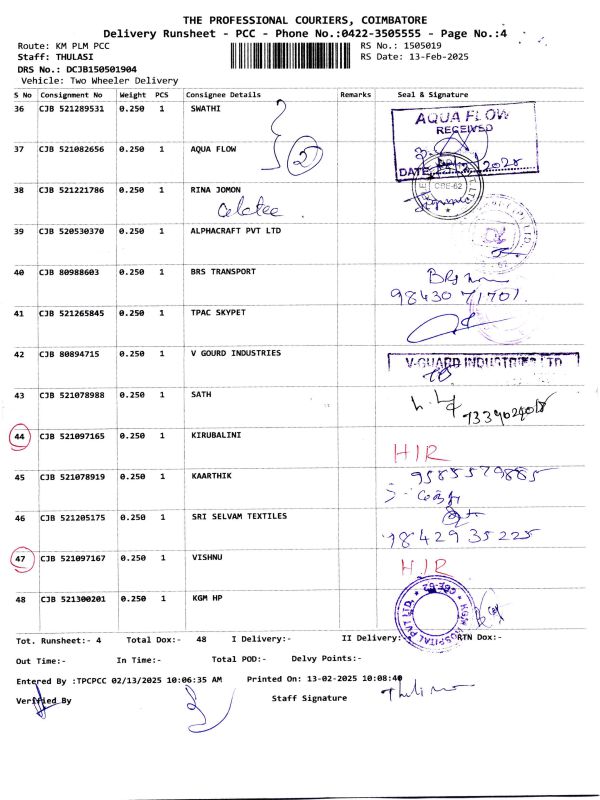 THE PROFESSIONAL COURIERS, COIMBATORE
Delivery Runsheet - PCC - Phone No.:0422-3505555 - Page No.:4
Route: KM PLM PCC RS No.: 1505019
Staff: THULASI RS Date: 13-Feb-2025
DRS No.: DCJB150501904
Vehicle: Two Wheeler Delivery
S No Consignment No Weight PCS Consignee Details Remarks Seal & Signature
36 CJB 521289531 0.250 1 SWATHI
AQUA FLOW
RECEIVED
37 CJB 521082656 0.250 1 AQUA FLOW 2
DATE 2025
38 CJB 521221786 0.250 1 RINA JOMON
CBE-62
39 CJB 520530370 0.250 1 ALPHACRAFT PVT LTD
40 CJB 80988603 0.250 1 BRS TRANSPORT
98430 71701
41 CJB 521265845 0.250 1 TPAC SKYPET
42 CJB 80894715 0.250 1 V GOURD INDUSTRIES
V-GUARD INDUSTRIES LTD
43 CJB 521078988 0.250 1 SATH
44 CJB 521097165 0.250 1 KIRUBALINI
HIR
45 CJB 521078919 0.250 1 KAARTHIK 9585579885
46 CJB 521205175 0.250 1 SRI SELVAM TEXTILES
98429 35225
47 CJB 521097167 0.250 1 VISHNU HIR
48 CJB 521300201 0.250 1 KGM HP
KGM HOSPITAL PVT LTD. * CBE-62 *
Tot. Runsheet:- 4 Total Dox:- 48 I Delivery:- II Delivery:- RTN Dox:-
Out Time:- In Time:- Total POD:- Delvy Points:-
Entered By :TPCPCC 02/13/2025 10:06:35 AM Printed On: 13-02-2025 10:08:40
Verified By Staff Signature